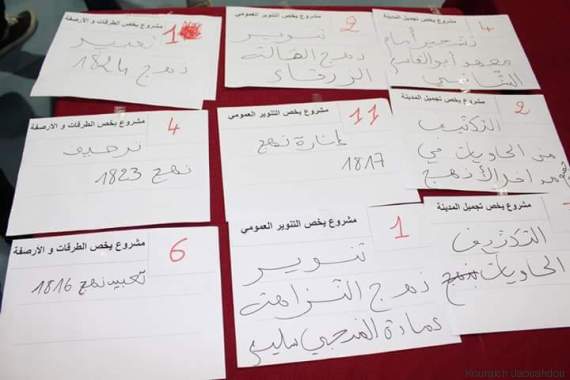 مشروع يخص الطرقات و الأرصفة
1
تعبيد
نهج 1824
مشروع يخص التنوير العمومي
2
تنوير
نهج الهالة
الزرقاء
مشروع يخص تجميل المدينة
4
تشجير أمام
معهد أبو القاسم
الشابي
مشروع يخص الطرقات و الأرصفة
4
ترصيف
نهج 1823
مشروع يخص التنوير العمومي
11
إنارة نهج
1817
مشروع يخص تجميل المدينة
2
التكثيف
من الحاويات في
الأنهج
مشروع يخص الطرقات و الأرصفة
6
تعبيد نهج 1816
مشروع يخص التنوير العمومي
1
تنوير
نهج النزاهة
عمادة
مشروع يخص تجميل المدينة
التكثيف
الحاويات
Kouraich Jaouahdou